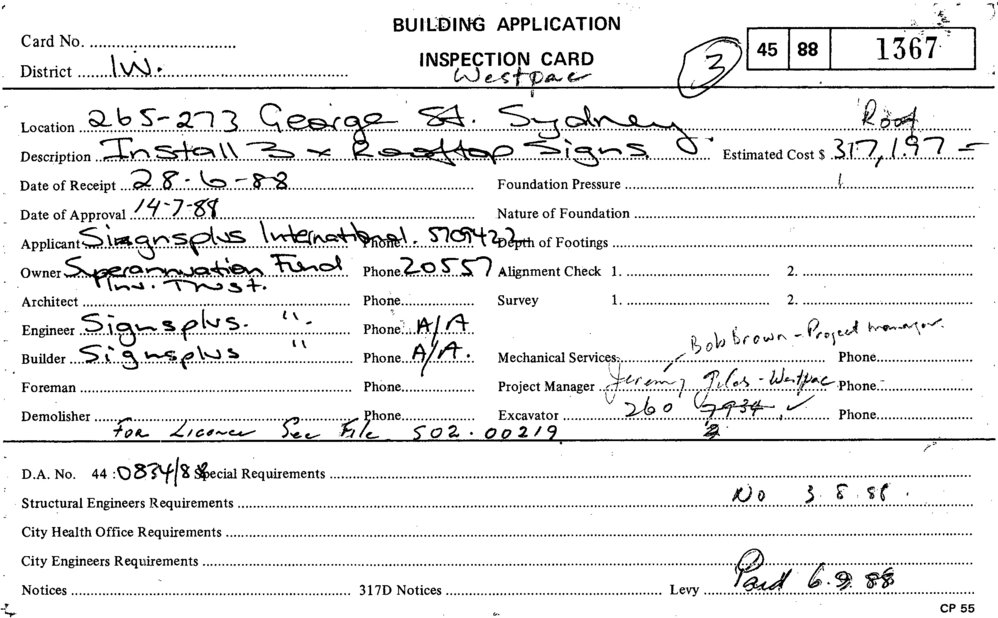 BUILDING APPLICATION
Card No.
INSPECTION CARD
45 88 1367
3
District I.W.
Westpac
Location 265-273 George St. Sydney
Roof
Description Install 3 x Rooftop Signs Estimated Cost $ 317,197 =
Date of Receipt 28-6-88 Foundation Pressure
Date of Approval 14-7-88 Nature of Foundation
Applicant Signsplus International. Phone 5709422 Depth of Footings
Owner Superannuation Fund Phone 20557 Alignment Check 1. 2.
Inv. Trust.
Architect Phone Survey 1. 2.
Engineer Signsplus. " . Phone A/A
Bob Brown - Project manager.
Builder Signsplus " Phone A/A. Mechanical Services Phone
Foreman Phone Project Manager Jeremy - Westpac Phone
Demolisher Phone Excavator 260 7934 Phone
For Licence See File 502.00219 2
D.A. No. 44 : 0834/88 Special Requirements
Structural Engineers Requirements No 3.8.88.
City Health Office Requirements
City Engineers Requirements
Notices 317D Notices Levy Paid 6.9.88
CP 55